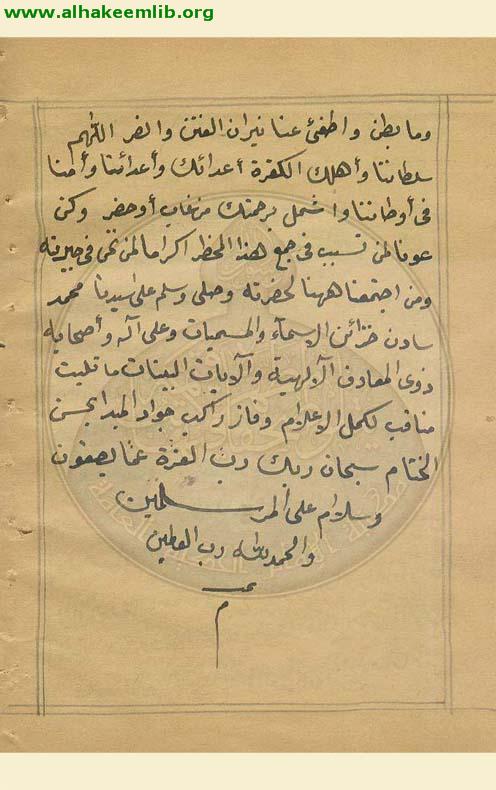 www.alhakeemlib.org
وما بطن واطفئ عنا نيران الفتن والضر اللهم
سلطاننا وأهلك الكفرة أعدائك وأعدائنا وأمنا
فى أوطاننا واشمل برحمتك من غاب أو حضر وكن
عونا لمن تسبب فى جمع هذا المحضر اكراما لمن نحن فى جيرته
ومن اجتمعنا ههنا لحضرته وصلى وسلم على سيدنا محمد
سادن خزائن الاسمآء والمسميات وعلى آله وأصحابه
ذوى المعارف الآلهية والآيات البينات ما تليت
مناقب لكمل الاعلام وفاز راكب جواد المبد بحسن
الختام سبحان ربك رب العزة عما يصفون
وسلام على المرسلين
والحمد لله رب العالمين
م